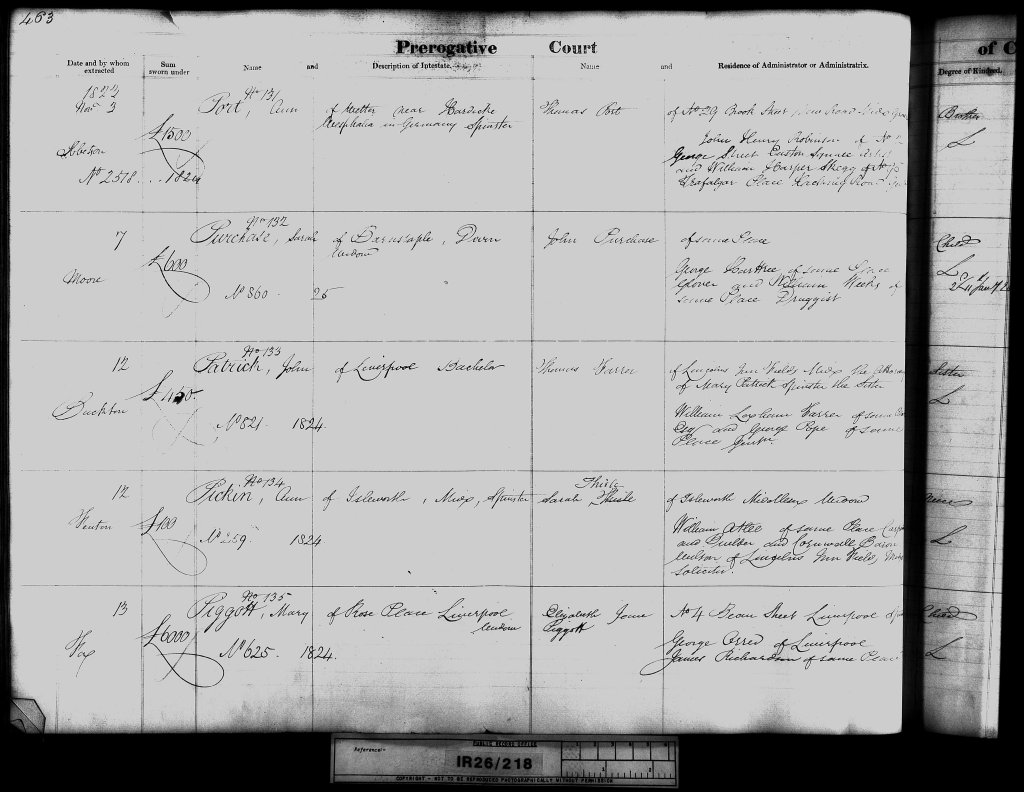 463
Prerogative Court of C
Date and by whom extracted
Sum sworn under
Name and Description of Intestate.
Name and Residence of Administrator or Administratrix.
Degree of Kindred.
1823
Nov 3
£1500
No 131
Port, Ann
of near
Westphalia in Germany Spinster
Thomas Port
of No 29 Brook Street, New Road
John Henry Robinson of No
George Street Euston Square
and William Harper of No
Trafalgar Place Hackney Road
Brother
No 2578 . . 1824
7
Moore
£600
No 132
Purchase, Sarah
of Barnstaple, Devon
Widow
No 860 25
John Purchase
of same Place
George of same Place
Glover and William Weeks of
same Place Druggist
Child
12
Buckton
£1150
No 133
Patrick, John
of Liverpool Bachelor
No 821. 1824.
Thomas Farrer
of Lincolns Inn Fields Midx the
of Mary Patrick Spinster the Sister
William Loxham Farrer of same
Esq and George Pope of same
Place Gentn.
Sister
12
£100
No 134
Picken, Ann
of Isleworth, Midx, Spinster
No 259 1824
Sarah
of Isleworth Middlesex Widow
William Atlee of same Place
and Builder and Cornwall Baron
Wilson of Lincolns Inn Fields,
Solicitor.
Niece
13
£6000
No 135
Piggott, Mary
of Rose Place Liverpool
Widow
No 625 1824.
Elizabeth Jane
Piggott
No 4 Street Liverpool
George of Liverpool
James Richardson of same Place
Child
PUBLIC RECORD OFFICE
Reference:-
IR26/218
COPYRIGHT - NOT TO BE REPRODUCED PHOTOGRAPHICALLY WITHOUT PERMISSION